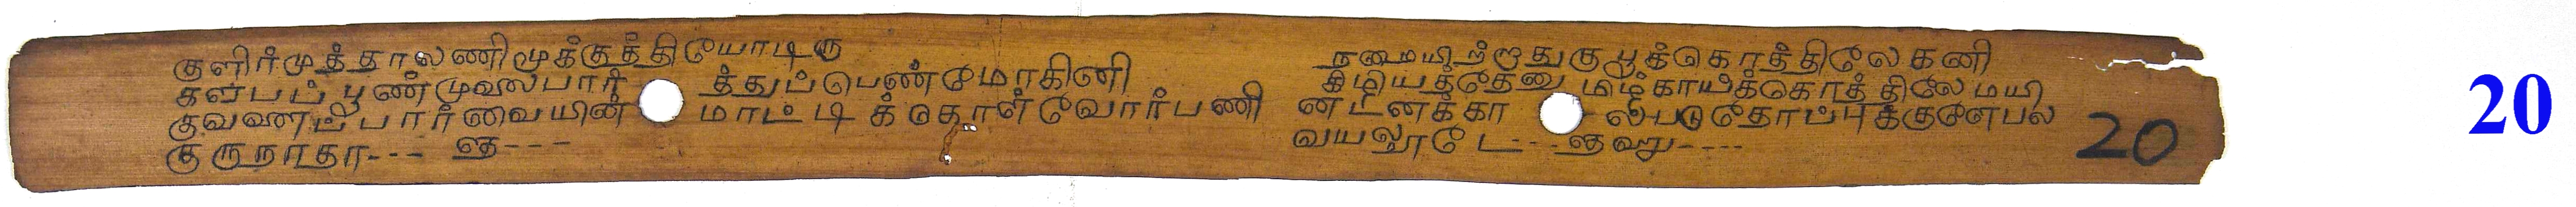 குளிர்முத்தாலணிமூக்குத்தியோடிரு
களபப் பூண்முலைபாரி த்துப்பெண்மோகினி
குவளைப்பார்வையின் மாட்டிக்கொள்வோர்பணி
குருநாதா--- ---
நமையிற்றுகு பூக்கொத்திலே கனி
கிழியத்தேனு மிழ்காய்க்கொத்திலே மயி
னடனக்கா லபடுதோப்புக்குளேபல
வயலூடே---
20
20